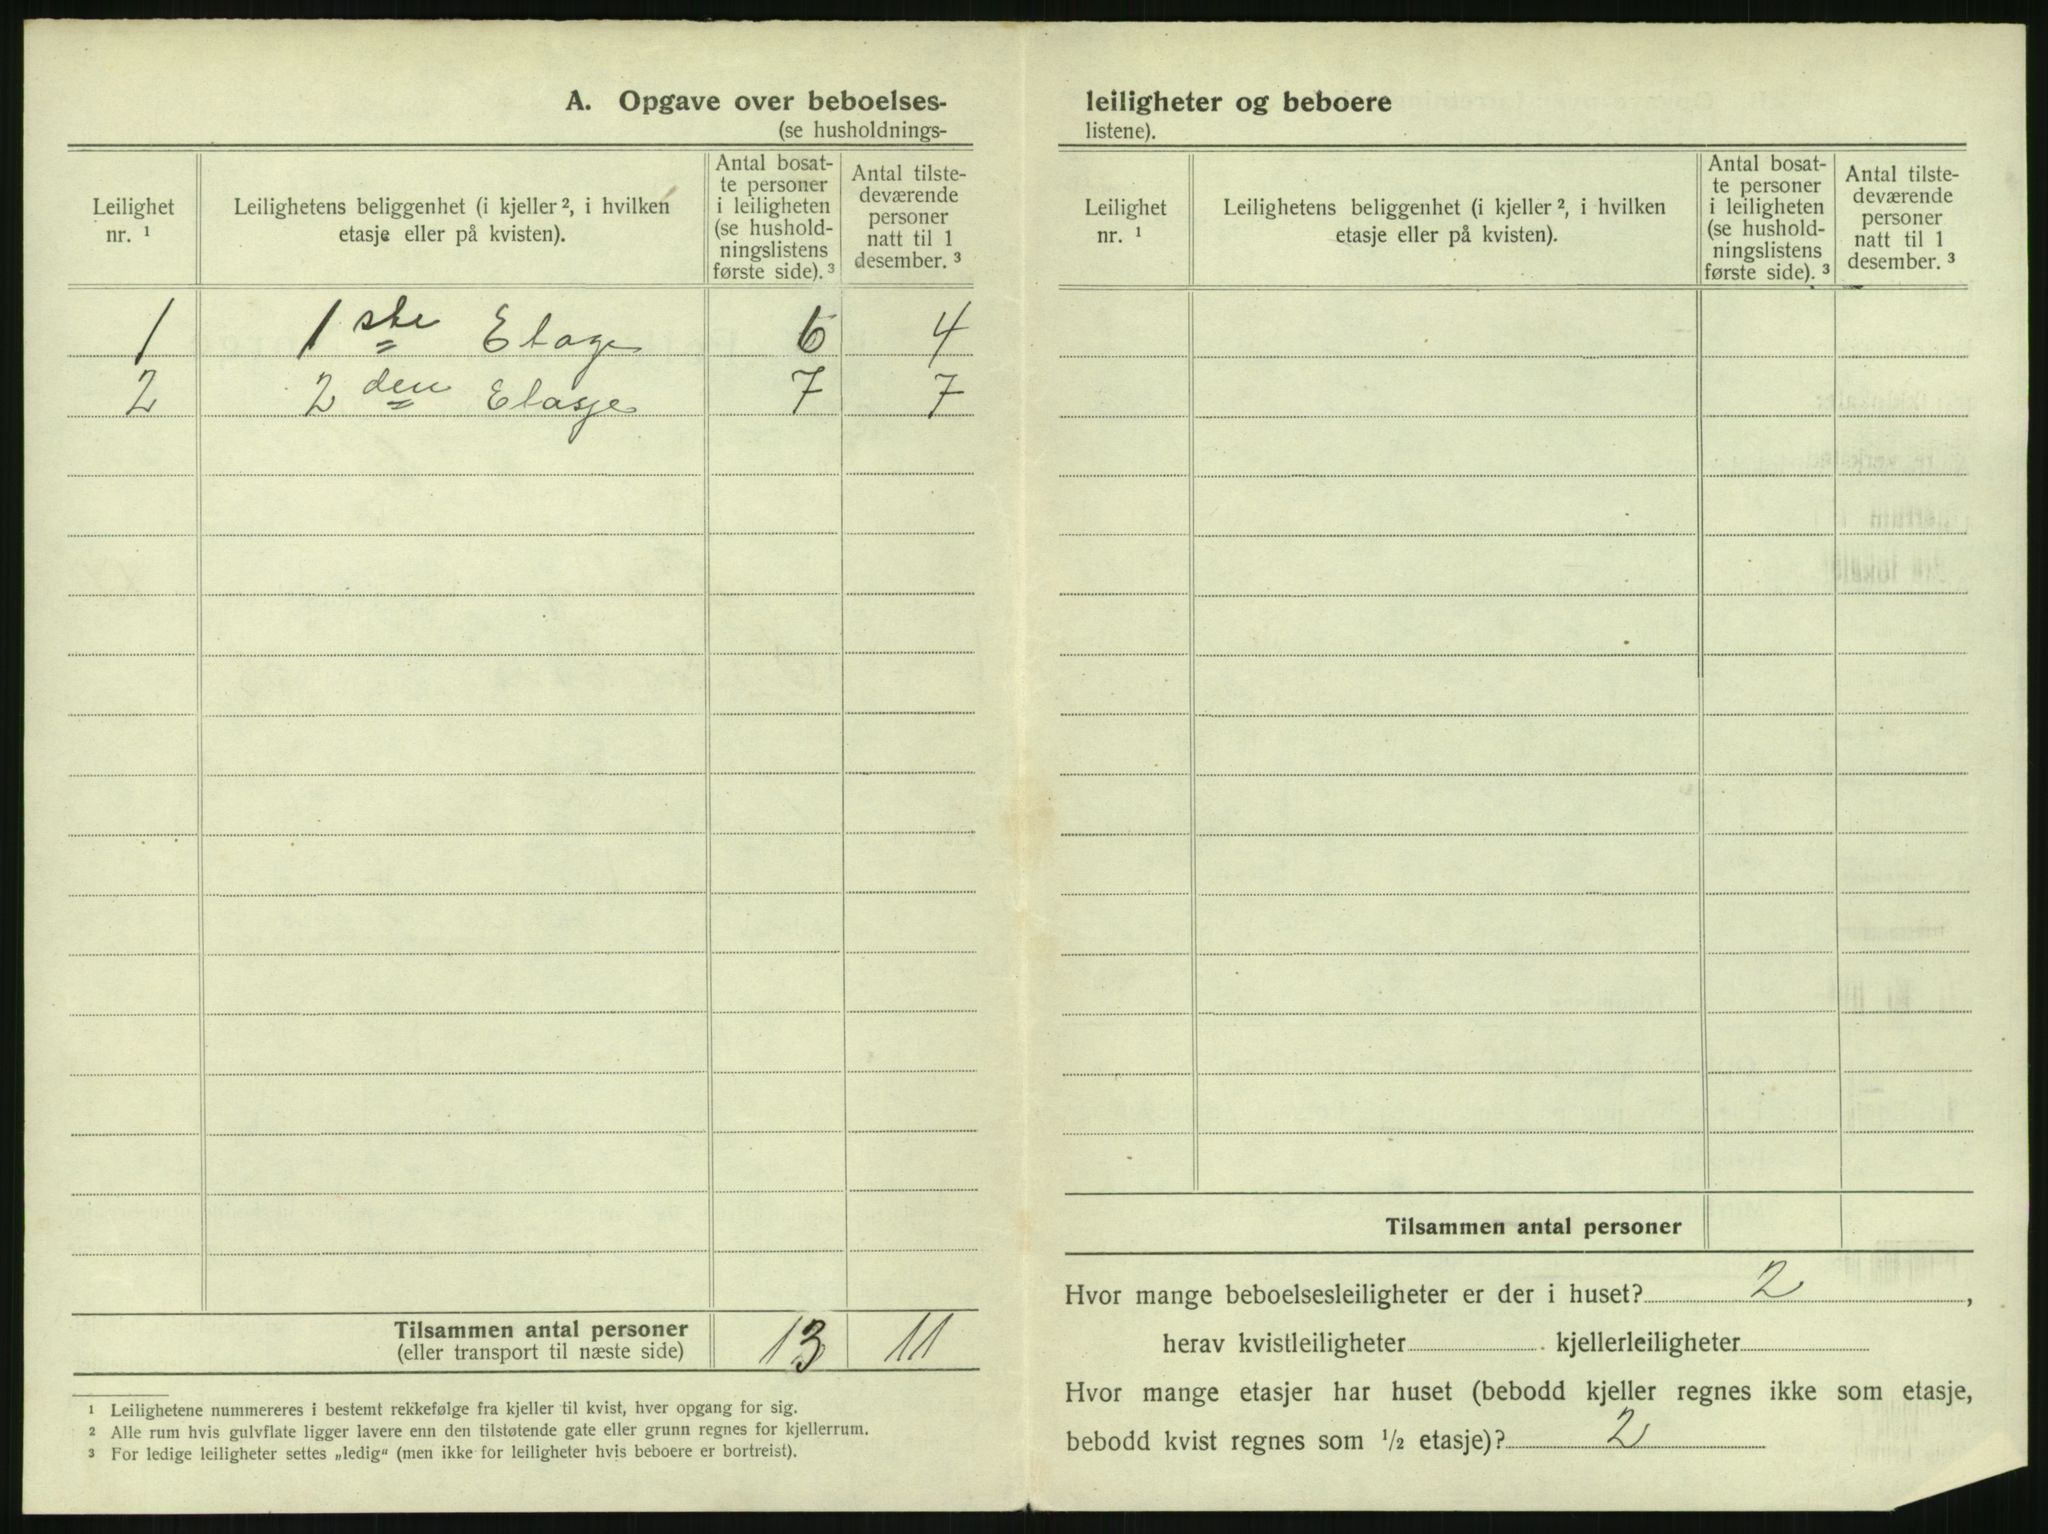 A. Opgave over beboelses-
(se husholdnings-
Leilighet nr. ¹
Leilighetens beliggenhet (i kjeller ², i hvilken etasje eller på kvisten).
Antal bosat-
te personer
i leiligheten
(se hushold-
ningslistens
første side). ³
Antal tilste-
deværende
personer
natt til 1
desember. ³
1 1ste Etage 6 4
2 2den Etasje 7 7
Tilsammen antal personer 13 11
(eller transport til næste side)
¹ Leilighetene nummereres i bestemt rekkefølge fra kjeller til kvist, hver opgang for sig.
² Alle rum hvis gulvflate ligger lavere enn den tilstøtende gate eller grunn regnes for kjellerrum.
³ For ledige leiligheter settes „ledig“ (men ikke for leiligheter hvis beboere er bortreist).
leiligheter og beboere
listene).
Leilighet nr. ¹
Leilighetens beliggenhet (i kjeller ², i hvilken etasje eller på kvisten).
Antal bosat-
te personer
i leiligheten
(se hushold-
ningslistens
første side). ³
Antal tilste-
deværende
personer
natt til 1
desember. ³
Tilsammen antal personer
Hvor mange beboelsesleiligheter er der i huset? 2,
herav kvistleiligheter . kjellerleiligheter
Hvor mange etasjer har huset (bebodd kjeller regnes ikke som etasje,
bebodd kvist regnes som ½ etasje)? 2